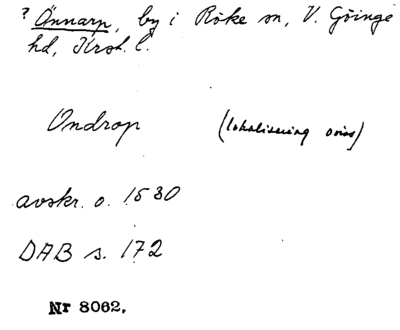 ? Önnarp, by i Röke sn, V. Göinge
hd, Krst. l.
Ondrop (lokalisering oviss)
avskr. o. 1530
DAB s. 172
Nr 8062.